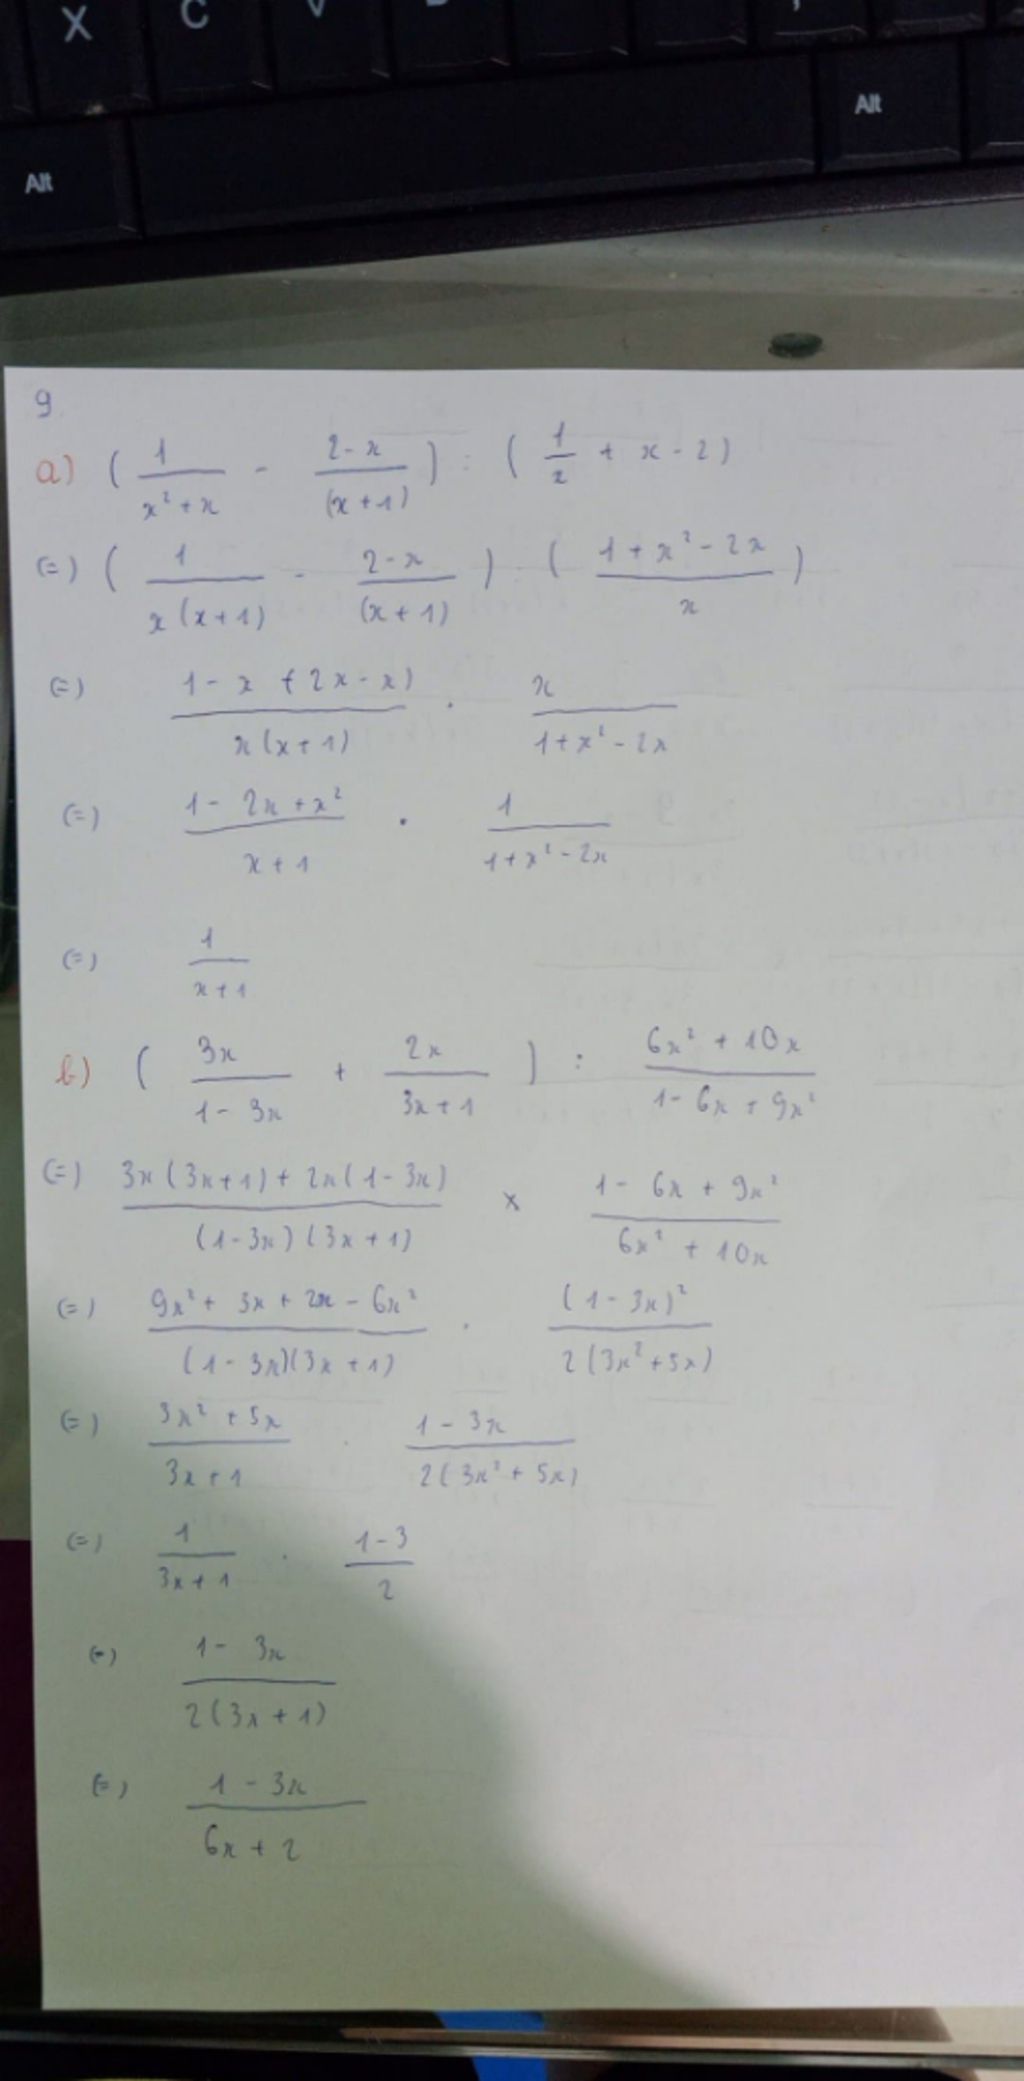 X C V
Alt
Alt
9.
a) ( 1/(x² + x) - (2 - x)/(x + 1) ) : ( 1/x + x - 2 )
(=) ( 1/(x(x + 1)) - (2 - x)/(x + 1) ) . ( (1 + x² - 2x)/x )
(=) (1 - x (2x - x))/(x(x + 1)) . x/(1 + x² - 2x)
(=) (1 - 2x + x²)/(x + 1) . 1/(1 + x² - 2x)
(=) 1/(x + 1)
b) ( 3x/(1 - 3x) + 2x/(3x + 1) ) : (6x² + 10x)/(1 - 6x + 9x²)
(=) (3x(3x + 1) + 2x(1 - 3x))/((1 - 3x)(3x + 1)) x (1 - 6x + 9x²)/(6x² + 10x)
(=) (9x² + 3x + 2x - 6x²)/((1 - 3x)(3x + 1)) . (1 - 3x)²/(2(3x² + 5x))
(=) (3x² + 5x)/(3x + 1) . (1 - 3x)/(2(3x² + 5x))
(=) 1/(3x + 1) . (1 - 3)/2
(=) (1 - 3x)/(2(3x + 1))
(=) (1 - 3x)/(6x + 2)